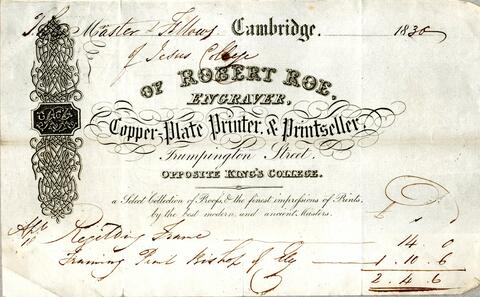 The Master & Fellows Cambridge. 1830
of Jesus College
OF ROBERT ROE,
ENGRAVER,
Copper-Plate Printer, & Printseller,
Trumpington Street.
OPPOSITE KING'S COLLEGE.
a Select Collection of Proofs, & the finest impressions of Prints,
by the best modern, and ancient Masters.
Frame 14 0
Framing Print Bishop of Ely 1. 10. 6
2. 4. 6